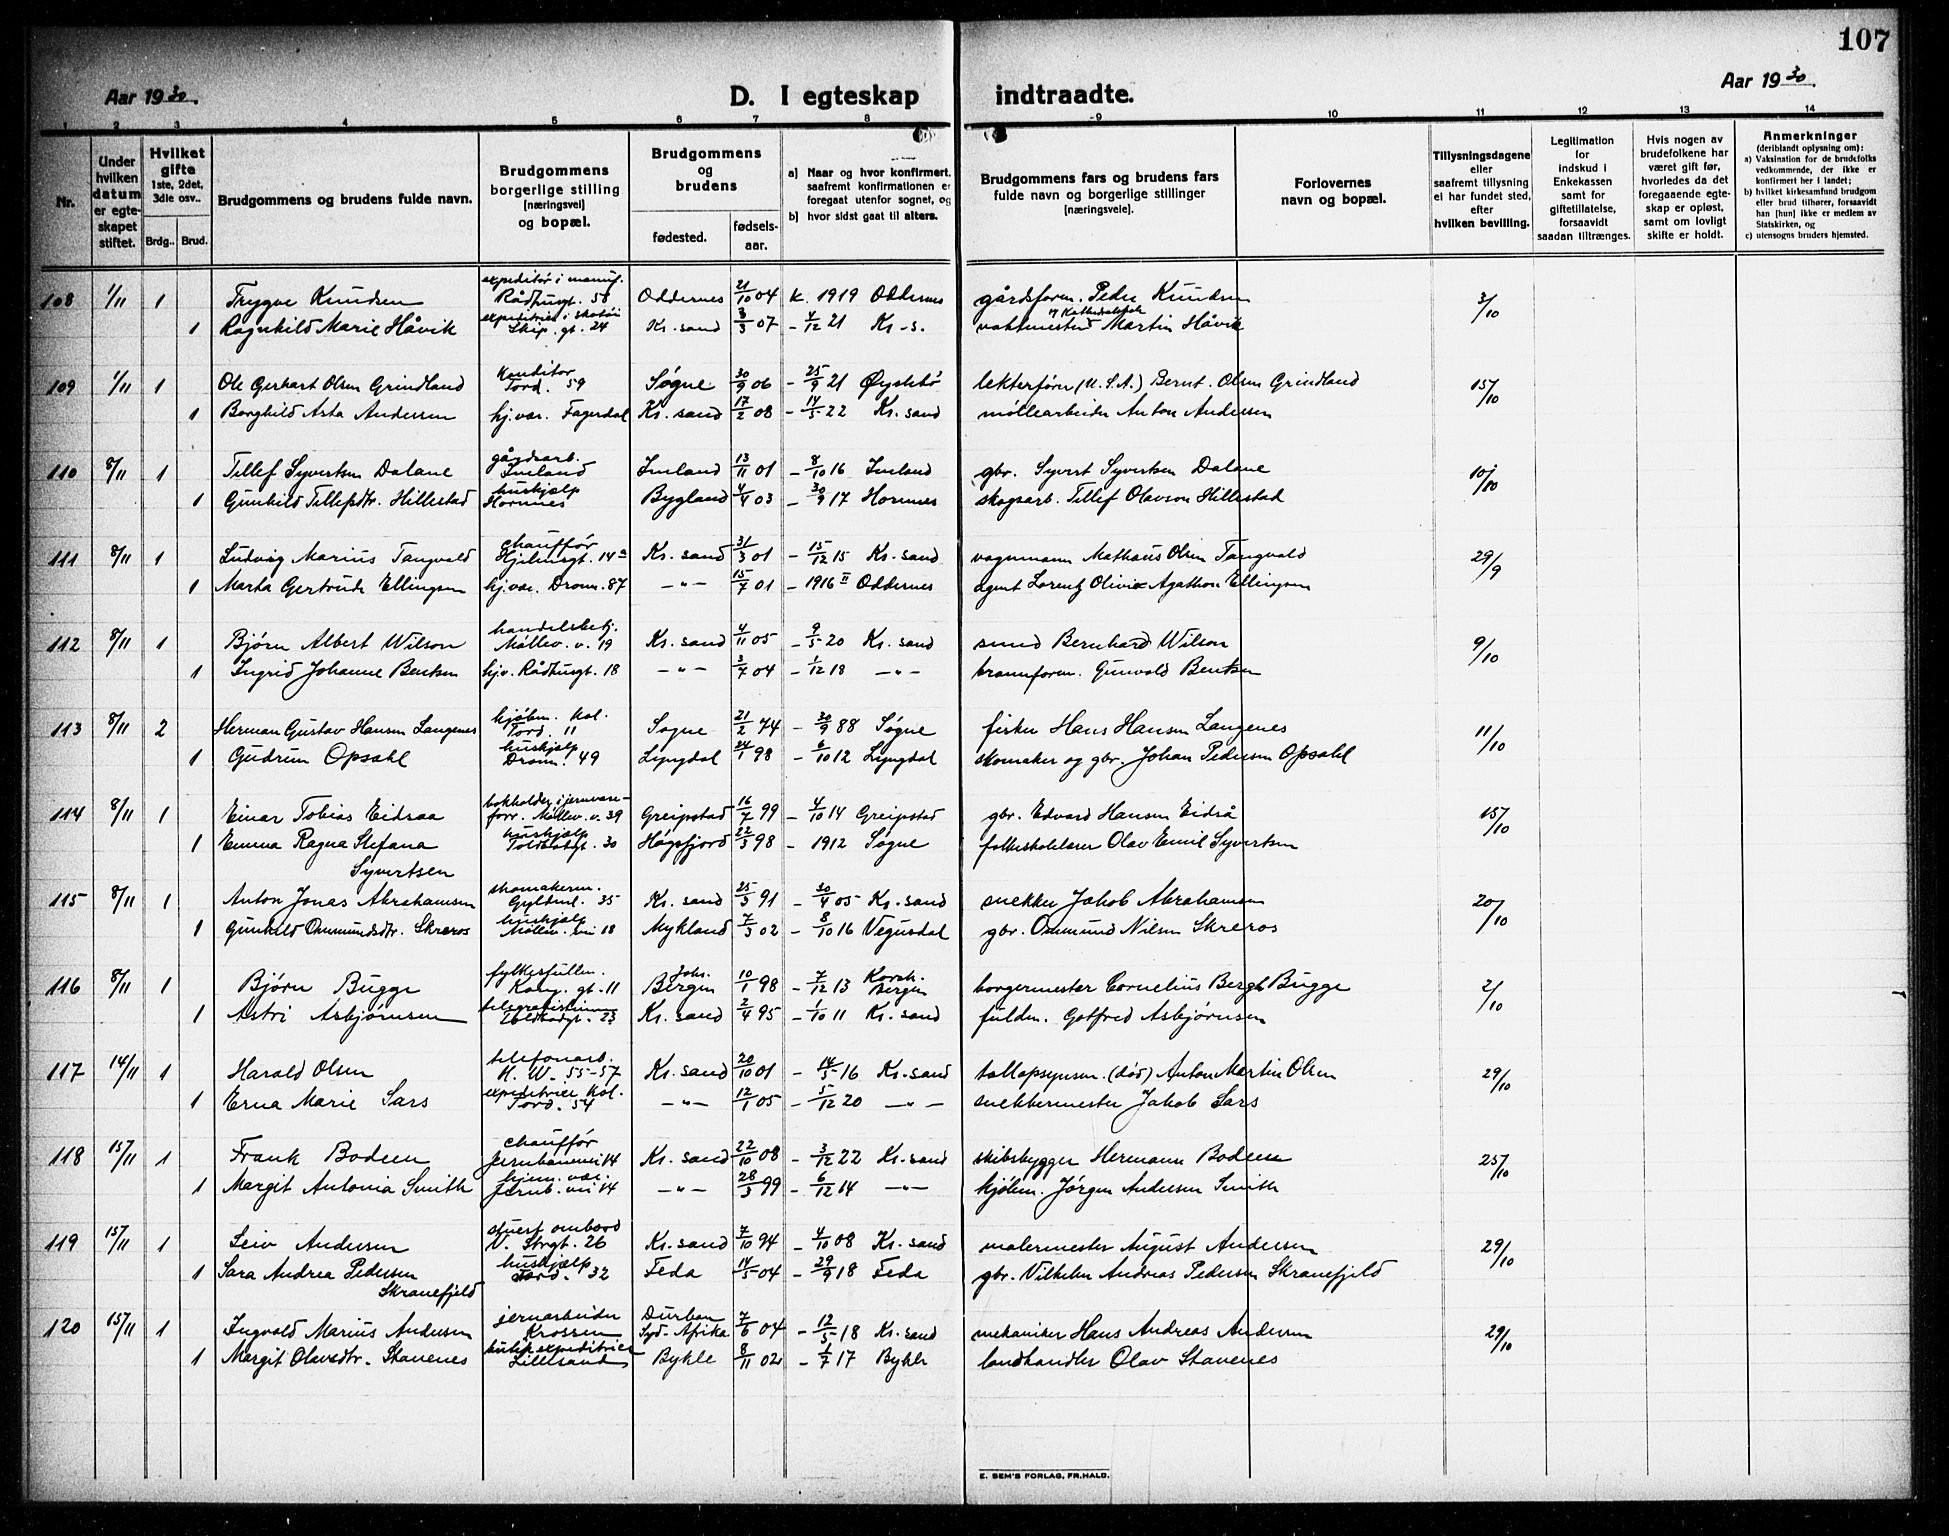 107
Aar 1930.
D. I egteskap indtraadte.
Aar 1930.
1 2 3 4 5 6 7 8 9 10 11 12 13 14
Nr.
Under hvilken datum er egteskapet stiftet.
Hvilket gifte 1ste, 2det, 3die osv.. Brdg.. Brud.
Brudgommens og brudens fulde navn.
Brudgommens borgerlige stilling (næringsvei) og bopæl.
Brudgommens og brudens fødested. fødselsaar.
a) Naar og hvor konfirmert, saafremt konfirmationen er foregaat utenfor sognet, og
b) hvor sidst gaat til alters.
Brudgommens fars og brudens fars fulde navn og borgerlige stillinger (næringsveie).
Forlovernes navn og bopæl.
Tillysningsdagene eller saafremt tillysning ei har fundet sted, efter hvilken bevilling.
Legitimation for indskud i Enkekassen samt for giftetillatelse, forsaavidt saadan tiltrænges.
Hvis nogen av brudefolkene har været gift før, hvorledes da det foregaaende egteskap er opløst, samt om lovligt skifte er holdt.
Anmerkninger (deriblandt oplysning om):
a) Vaksination for de brudefolks vedkommende, der ikke er konfirmert her i landet;
b) hvilket kirkesamfund brudgom eller brud tilhører, forsaavidt han [hun] ikke er medlem av Statskirken, og
c) utensogns bruders hjemsted.
108 1/11 1 Trygve Knudsen expeditør i manuf. Rådhusgt. 58 Oddernes 21/10 04 k. 1919 Oddernes gårdsform. Peder Knudsen 3/10
1 Ragnhild Marie Håvik expeditrice i skotøi Skip. gt. 24 Kr. sand 3/3 07 - 4/12 21 Kr-s. vaktmester v Katedralskole Martin Håvik
109 1/11 1 Ole Gerhart Olsen Grindland konditor Tord. 59 Søgne 30/9 06 - 25/9 21 Øyslebø lekterfører (U.S.A.) Bernt. Olsen Grindland 15/10
1 Borghild Asta Andersen hj.vær. Fagerdal Kr. sand 17/2 08 - 14/5 22 Kr. sand møllearbeider Anton Andersen
110 8/11 1 Tellef Syvertsen Dalane gårdsarb. Iveland Iveland 13/11 01 - 8/10 16 Iveland gbr. Syvert Syvertsen Dalane 10/10
1 Gunhild Tellefsdtr. Hillestad hushjelp Hornnes Bygland 4/4 03 - 30/9 17 Hornnes skogsarb. Tellef Olavson Hillestad
111 8/11 1 Ludvig Marius Tangvald chauffør 14a Kr. sand 31/3 01 - 15/12 15 Kr. sand vognmann Mathæus Olsen Tangvald 29/9
1 Marta Gertrude Ellingsen hj.vær. Dronn. 87 -"- 15/7 01 - 1916 II Oddernes agent Lorentz Olivio Agathon Ellingsen
112 8/11 1 Bjørn Albert Wilson handelsbetj. Møllev. v. 19 Kr. sand 4/11 05 - 9/5 20 Kr. sand smed Bernhard Wilson 9/10
1 Ingrid Johanne Bentsen hj.v. Rådhusgt. 18 -"- 3/4 04 - 1/12 18 -"- brannform. Gunvald Bentsen
113 8/11 2 Herman Gustav Hansen Langenes kjøbm. kol. Tord. 11 Søgne 21/2 74 - 30/9 88 Søgne fisker Hans Hansen Langenes 11/10
1 Gudrun Opsahl hushjelp Dronn. 49 Lyngdal 24/1 98 - 6/10 12 Lyngdal skomaker og gbr. Johan Pedersen Opsahl
114 8/11 1 Einar Tobias Eidsaa bokholder i jernvareforr. Møllev. v. 39 Greipstad 16/7 99 - 4/10 14 Greipstad gbr. Edvard Hansen Eidså 15/10
1 Emma Ragna Stefana Syvertsen hushjelp Toldbodgt. 30 Høgsfjord 22/3 98 - 1912 Søgne folkeskolelærer Olav Emil Syvertsen
115 8/11 1 Anton Jonas Abrahamsen skomakerm. Gyldenl. 35 Kr. sand 25/3 91 - 30/4 05 Kr. sand snekker Jakob Abrahamsen 20/10
1 Gunhild Ommundsdtr. Skreros hushjelp Møllev. vei 18 Mykland 7/3 02 - 8/10 16 Vegusdal gbr. Ommund Nilsen Skreros
116 8/11 1 Bjørn Bugge fylkesfullm. Kong. gt. 11 Johs. Bergen 10/1 98 - 7/12 13 Korsk. Bergen borgermester Cornelius Bergh Bugge 2/10
1 Astri Asbjørnsen telegrafistinne Toldbodgt. 23 Kr. sand 2/4 95 - 1/10 11 Kr. sand fuldm. Gotfred Asbjørnsen
117 14/11 1 Harald Olsen telefonarb. H. W. 55-57 Kr. sand 20/10 01 - 14/5 16 Kr. sand tollopsynsm. (død) Anton Martin Olsen 29/10
1 Erna Marie Sars expeditrice kol. Tord. 54 -"- 12/1 05 - 5/12 20 -"- snekkermester Jakob Sars
118 15/11 1 Frank Bodeen chauffør Jernbanevei 14 Kr. sand 22/10 08 - 3/12 22 Kr. sand skibsbygger Hermann Bodeen 25/10
1 Margit Antonia Smith hjem. vær. Jernb. vei 14 -"- 28/3 99 - 6/12 14 -"- kjøbm. Jørgen Andersen Smith
119 15/11 1 Leiv Andersen stuert ombord V. Strgt. 26 Kr. sand 7/10 94 - 4/10 08 Kr. sand malermester August Andersen 29/10
1 Sara Andrea Pedersen Skranefjeld hushjelp Tord. 32 Feda 14/5 04 - 29/9 18 Feda gbr. Vilhelm Andreas Pedersen Skranefjeld
120 15/11 1 Ingvald Marius Andersen jernarbeider Krossen Durban Syd-Afrika 7/6 04 - 12/5 18 Kr. sand mekaniker Hans Andreas Andersen 29/10
1 Margit Olavsdtr. Stavenes butikexpeditrice Lillesand Bykle 8/11 02 - 1/7 17 Bykle landhandler Olav Stavenes
E. SEM'S FORLAG, FR.HALD.